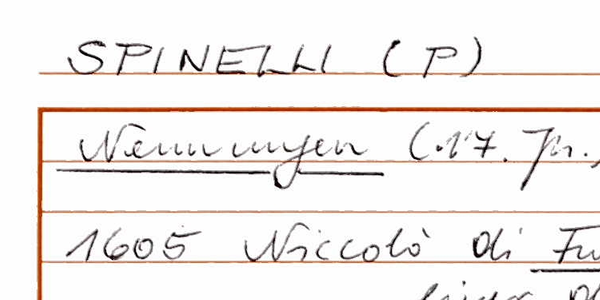 SPINELLI (P)
Nennungen (17. Jh.)
1605 Niccolò di